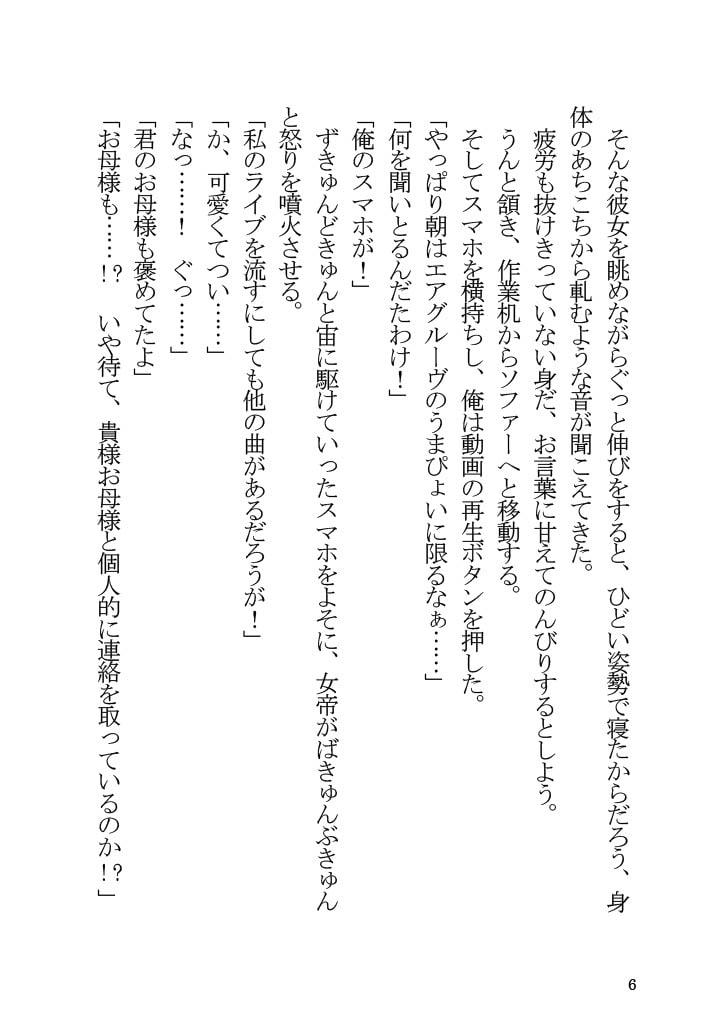 そんな彼女を眺めながらぐっと伸びをすると、ひどい姿勢で寝たからだろう、身
体のあちこちから軋むような音が聞こえてきた。
疲労も抜けきっていない身だ、お言葉に甘えてのんびりするとしよう。
うんと頷き、作業机からソファーへと移動する。
そしてスマホを横持ちし、俺は動画の再生ボタンを押した。
「やっぱり朝はエアグルーヴのうまぴょいに限るなぁ……」
「何を聞いとるんだたわけ！」
「俺のスマホが！」
ずきゅんどきゅんと宙に駆けていったスマホをよそに、女帝がばきゅんぶきゅん
と怒りを噴火させる。
「私のライブを流すにしても他の曲があるだろうが！」
「か、可愛くてつい……」
「なっ……！　ぐっ……」
「君のお母様も褒めてたよ」
「お母様も……!?　いや待て、貴様お母様と個人的に連絡を取っているのか!?」
6